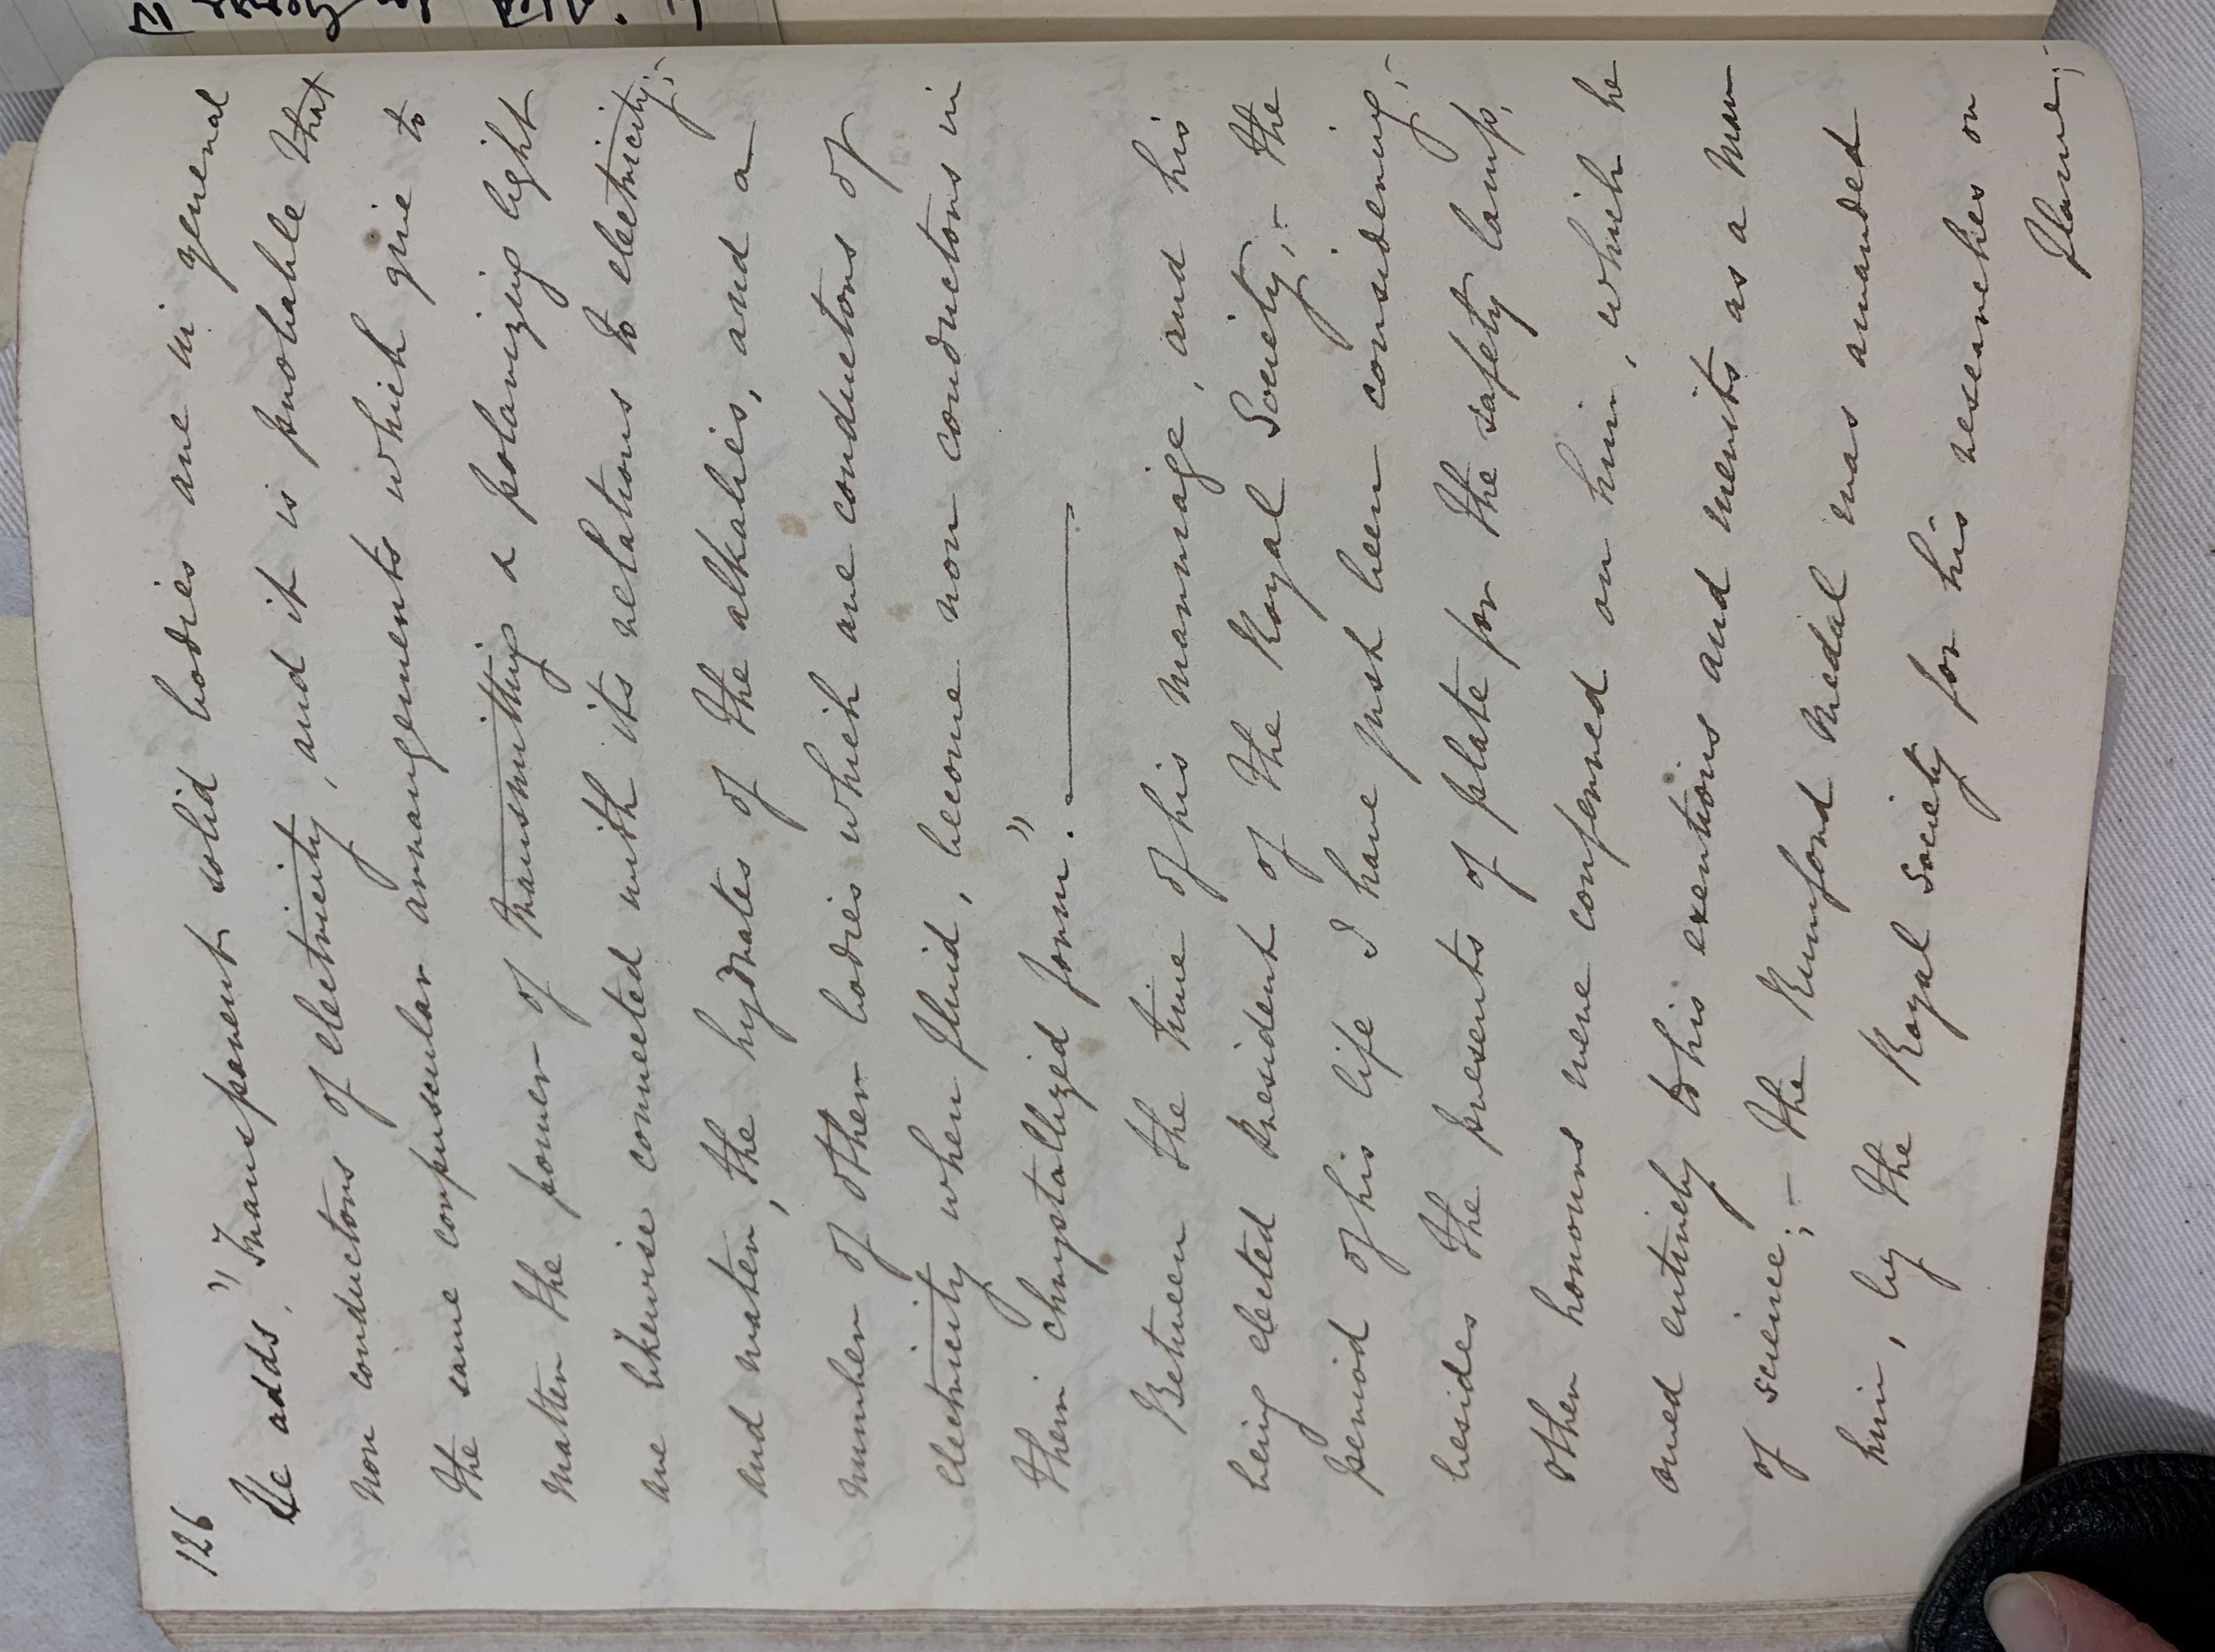 126
He adds, "Transparent solid bodies are in general
non conductors of electricity, and it is probable that
the same corpuscular arrangements which give to
matter the power of transmitting & polarizing light
are likewise connected with its relations to electricity;-
and water, the hydrates of the alkalies, and a
number of other bodies which are conductors of
electricity when fluid, become non conductors in
their chrystallized form."
Between the time of his marriage, and his
being elected President of the Royal Society;- the
period of his life I have just been considering;-
besides the presents of plate for the safety lamp,
other honours were conferred on him, which he
owed entirely to his exertions and merits as a man
of science;- the Rumford Medal was awarded
him, by the Royal Society for his researches on
flame;-